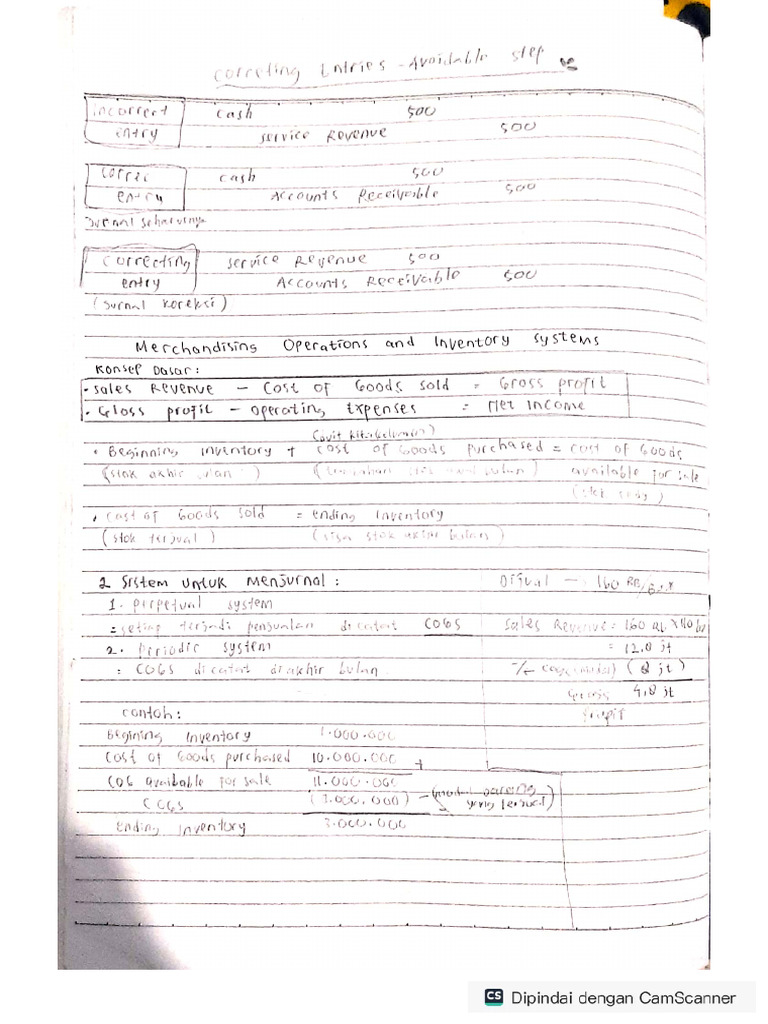 Correting Entries - Avoidable step
incorrect cash 500
entry service Revenue 500
correc cash 500
entry Accounts Receivable 500
Jurnal seharusnya
correcting service Revenue 500
entry Accounts Receivable 500
(Jurnal Koreksi)
Merchandising Operations and Inventory systems
Konsep Dasar:
• Sales Revenue - Cost of Goods Sold = Gross profit
• Gloss profit - Operating Expenses = Net Income
• Beginning inventory + cost of Goods purchased = cost of Goods
(stok akhir bulan) available for sale
, cost of Goods Sold = ending inventory
(stok terjual) (sisa stok akhir bulan)
2 Sistem untuk Menjurnal: Dijual → 160 RB/
1. Perpetual system
= setiap terjadi penjualan dicatat COGS Sales Revenue = 160
2. Periodic system = 12.8 jt
= COGS dicatat diakhir bulan (8 jt)
Gross 4,8 jt
contoh: Profit
Begining Inventory 1.000.000
Cost of Goods purchased 10.000.000 +
COG available for sale 11.000.000
COGS
Ending Inventory 3.000.000
CS Dipindai dengan CamScanner